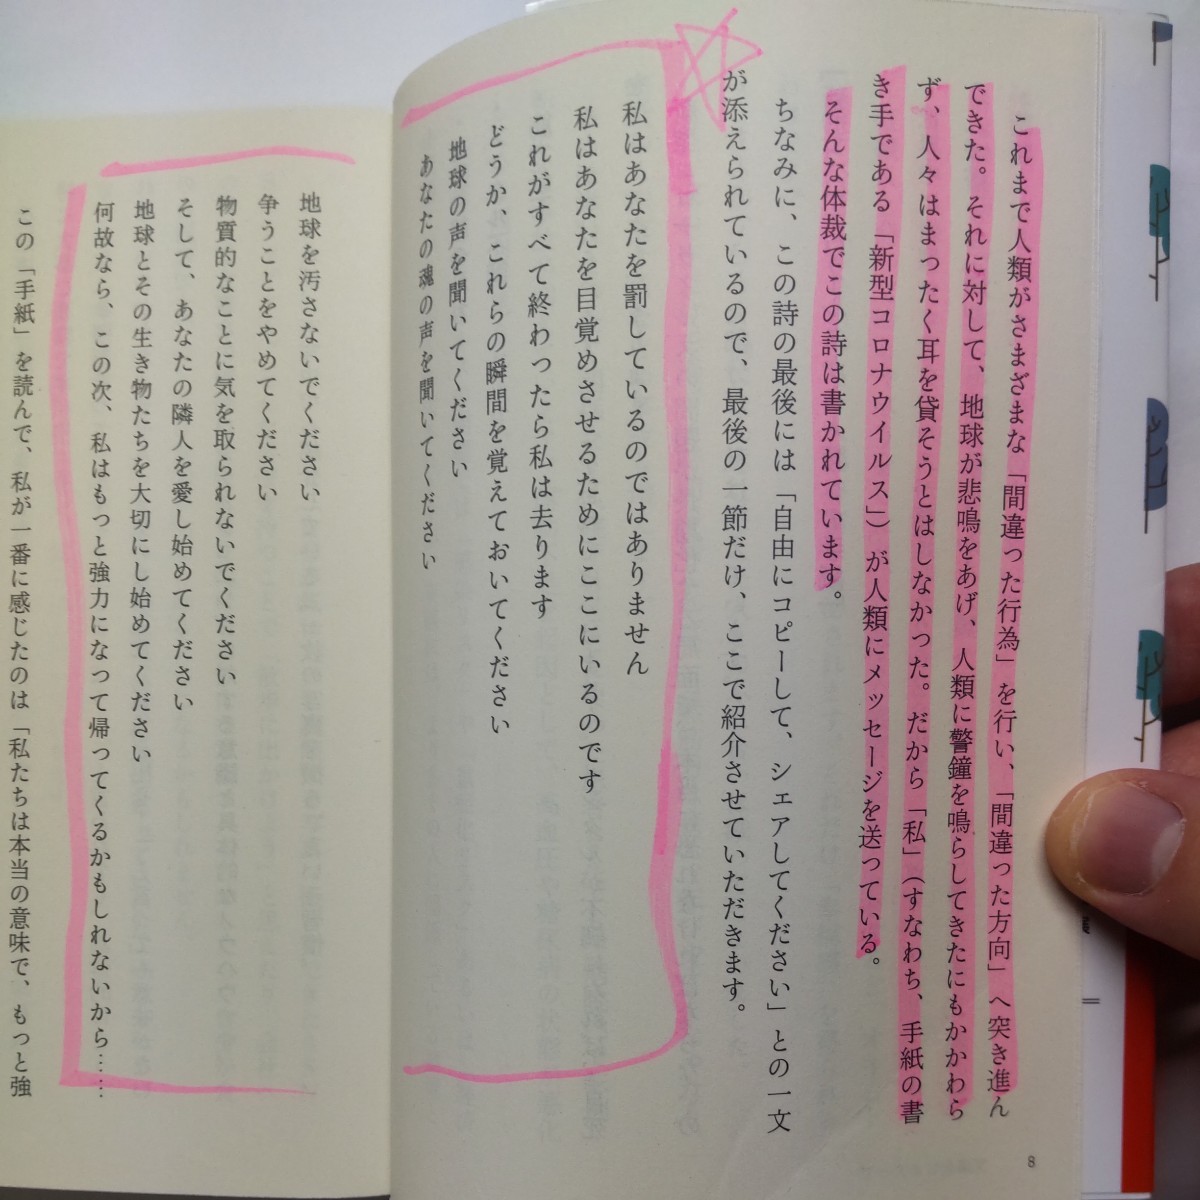 これまで人類がさまざまな「間違った行為」を行い、「間違った方向」へ突き進ん
できた。それに対して、地球が悲鳴をあげ、人類に警鐘を鳴らしてきたにもかかわら
ず、人々はまったく耳を貸そうとはしなかった。だから「私」（すなわち、手紙の書
き手である「新型コロナウイルス」）が人類にメッセージを送っている。
そんな体裁でこの詩は書かれています。
ちなみに、この詩の最後には「自由にコピーして、シェアしてください」との一文
が添えられているので、最後の一節だけ、ここで紹介させていただきます。
私はあなたを罰しているのではありません
私はあなたを目覚めさせるためにここにいるのです
これがすべて終わったら私は去ります
どうか、これらの瞬間を覚えておいてください
地球の声を聞いてください
あなたの魂の声を聞いてください
8
地球を汚さないでください
争うことをやめてください
物質的なことに気を取られないでください
そして、あなたの隣人を愛し始めてください
地球とその生き物たちを大切にし始めてください
何故なら、この次、私はもっと強力になって帰ってくるかもしれないから……
この「手紙」を読んで、私が一番に感じたのは「私たちは本当の意味で、もっと強